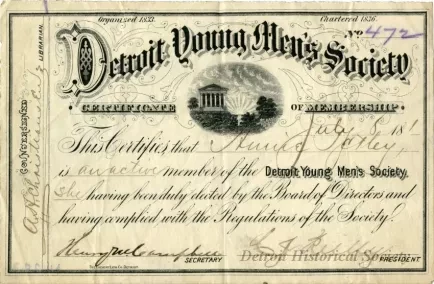 Organized 1833. Chartered 1836.
No 472
Detroit Young Men's Society
CERTIFICATE OF MEMBERSHIP
July 8, 181
This Certifies that
is an active member of the Detroit Young Men's Society,
She having been duly elected by the Board of Directors and
having complied with the Regulations of the Society.
Henry M Campbell
SECRETARY.
PRESIDENT
Detroit Historical Society
COUNTERSIGNED
LIBRARIAN.